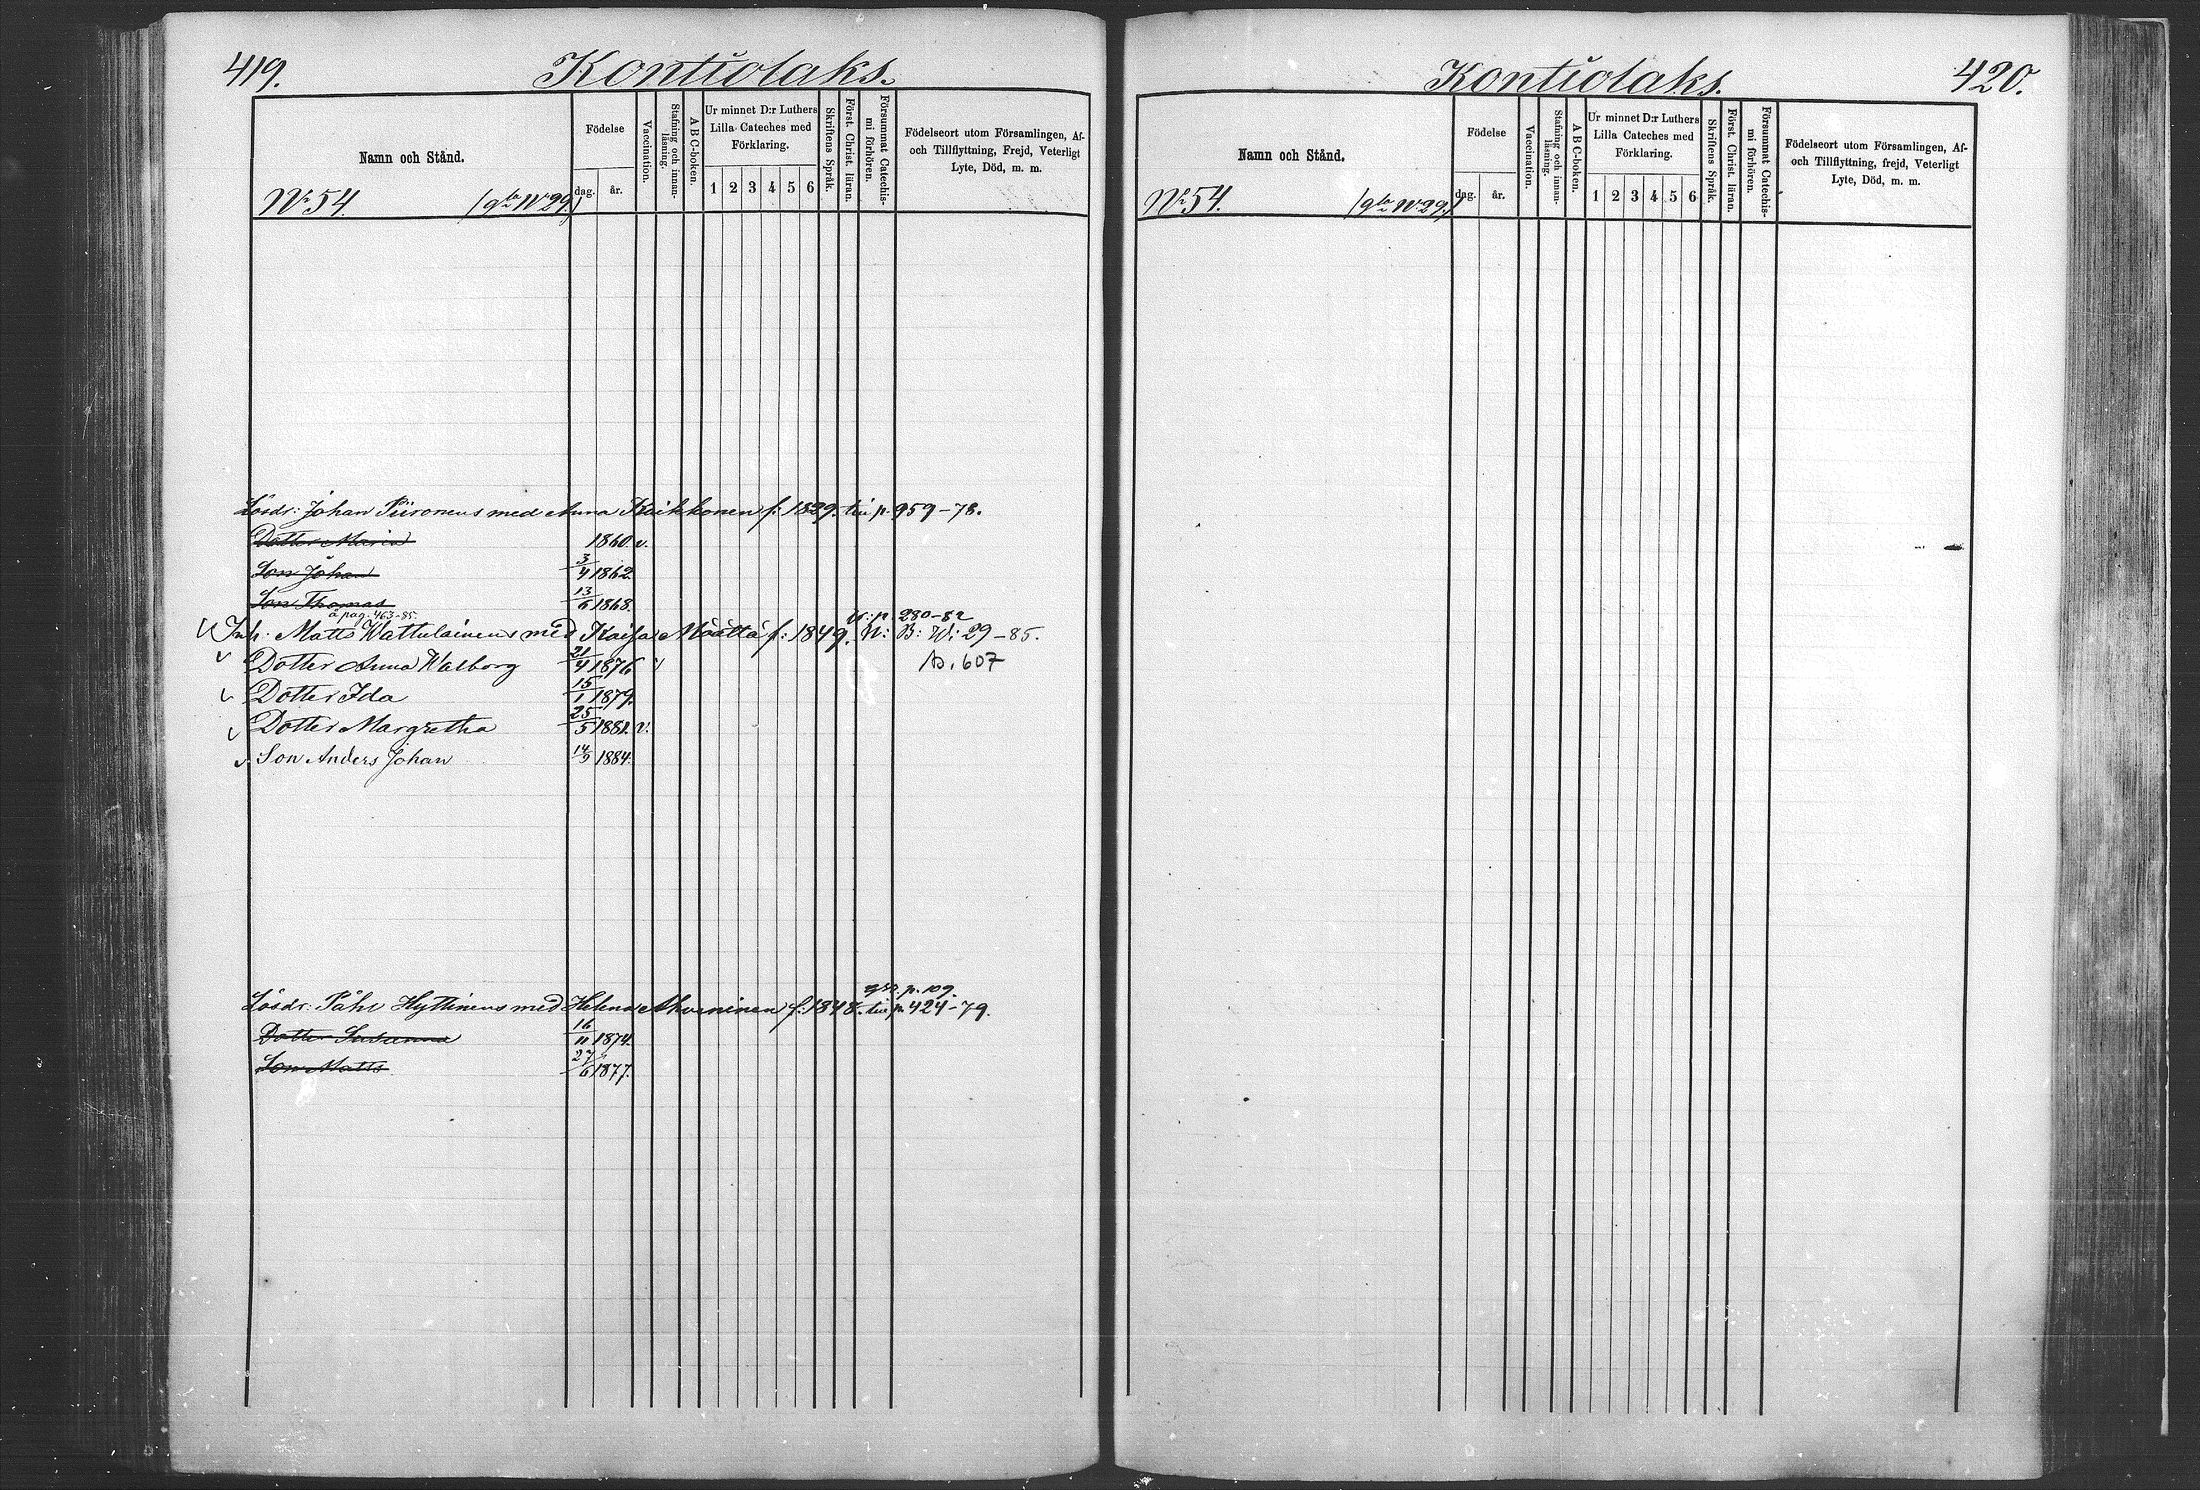 419.
Kontiolaks.
Namn och Stånd.
Födelse
dag. år.
Vaccination.
Stafning och innan-läsning.
A B C-boken.
Ur minnet D:r Luthers
Lilla Cateches med
Förklaring.
1 2 3 4 5 6
Skriftens Språk.
Först. Christ. läran.
Försummat Catechis-mi förhören.
Födelseort utom Församlingen, Af-
och Tillflyttning, Frejd, Veterligt
Lyte, Död, m. m.
No 54. (gla No 29.)
Lösdr: Johan Piironens med Anna Kaikkonen f: 1829. till p. 959-78.
Dotter Maria 1860. v.
Son Johan 3/4 1862.
Son Thomas 13/6 1868.
å pag. 463-85. fr: p. 280-82
Inh. Matts Wattulainens med Kaisa Määttä f: 1849. N: B: W: 29-85.
Dotter Anna Walborg 21/4 1876 v. 607
Dotter Ida 15/1 1879.
Dotter Margretha 25/5 1881. v.
Son Anders Johan 14/9 1884.
p. 109.
Lösdr: Påhl Hyttinens med Helena Ahveninen f: 1848. till p. 424-79.
Dotter Susanna 16/11 1874.
Son Matts 27/6 1877.
420.
Kontiolaks.
Namn och Stånd.
Födelse
dag. år.
Vaccination.
Stafning och innan-läsning.
A B C-boken.
Ur minnet D:r Luthers
Lilla Cateches med
Förklaring.
1 2 3 4 5 6
Skriftens Språk.
Först. Christ. läran.
Försummat Catechis-mi förhören.
Födelseort utom Församlingen, Af-
och Tillflyttning, frejd, Veterligt
Lyte, Död, m. m.
No 54. (gla No 29.)